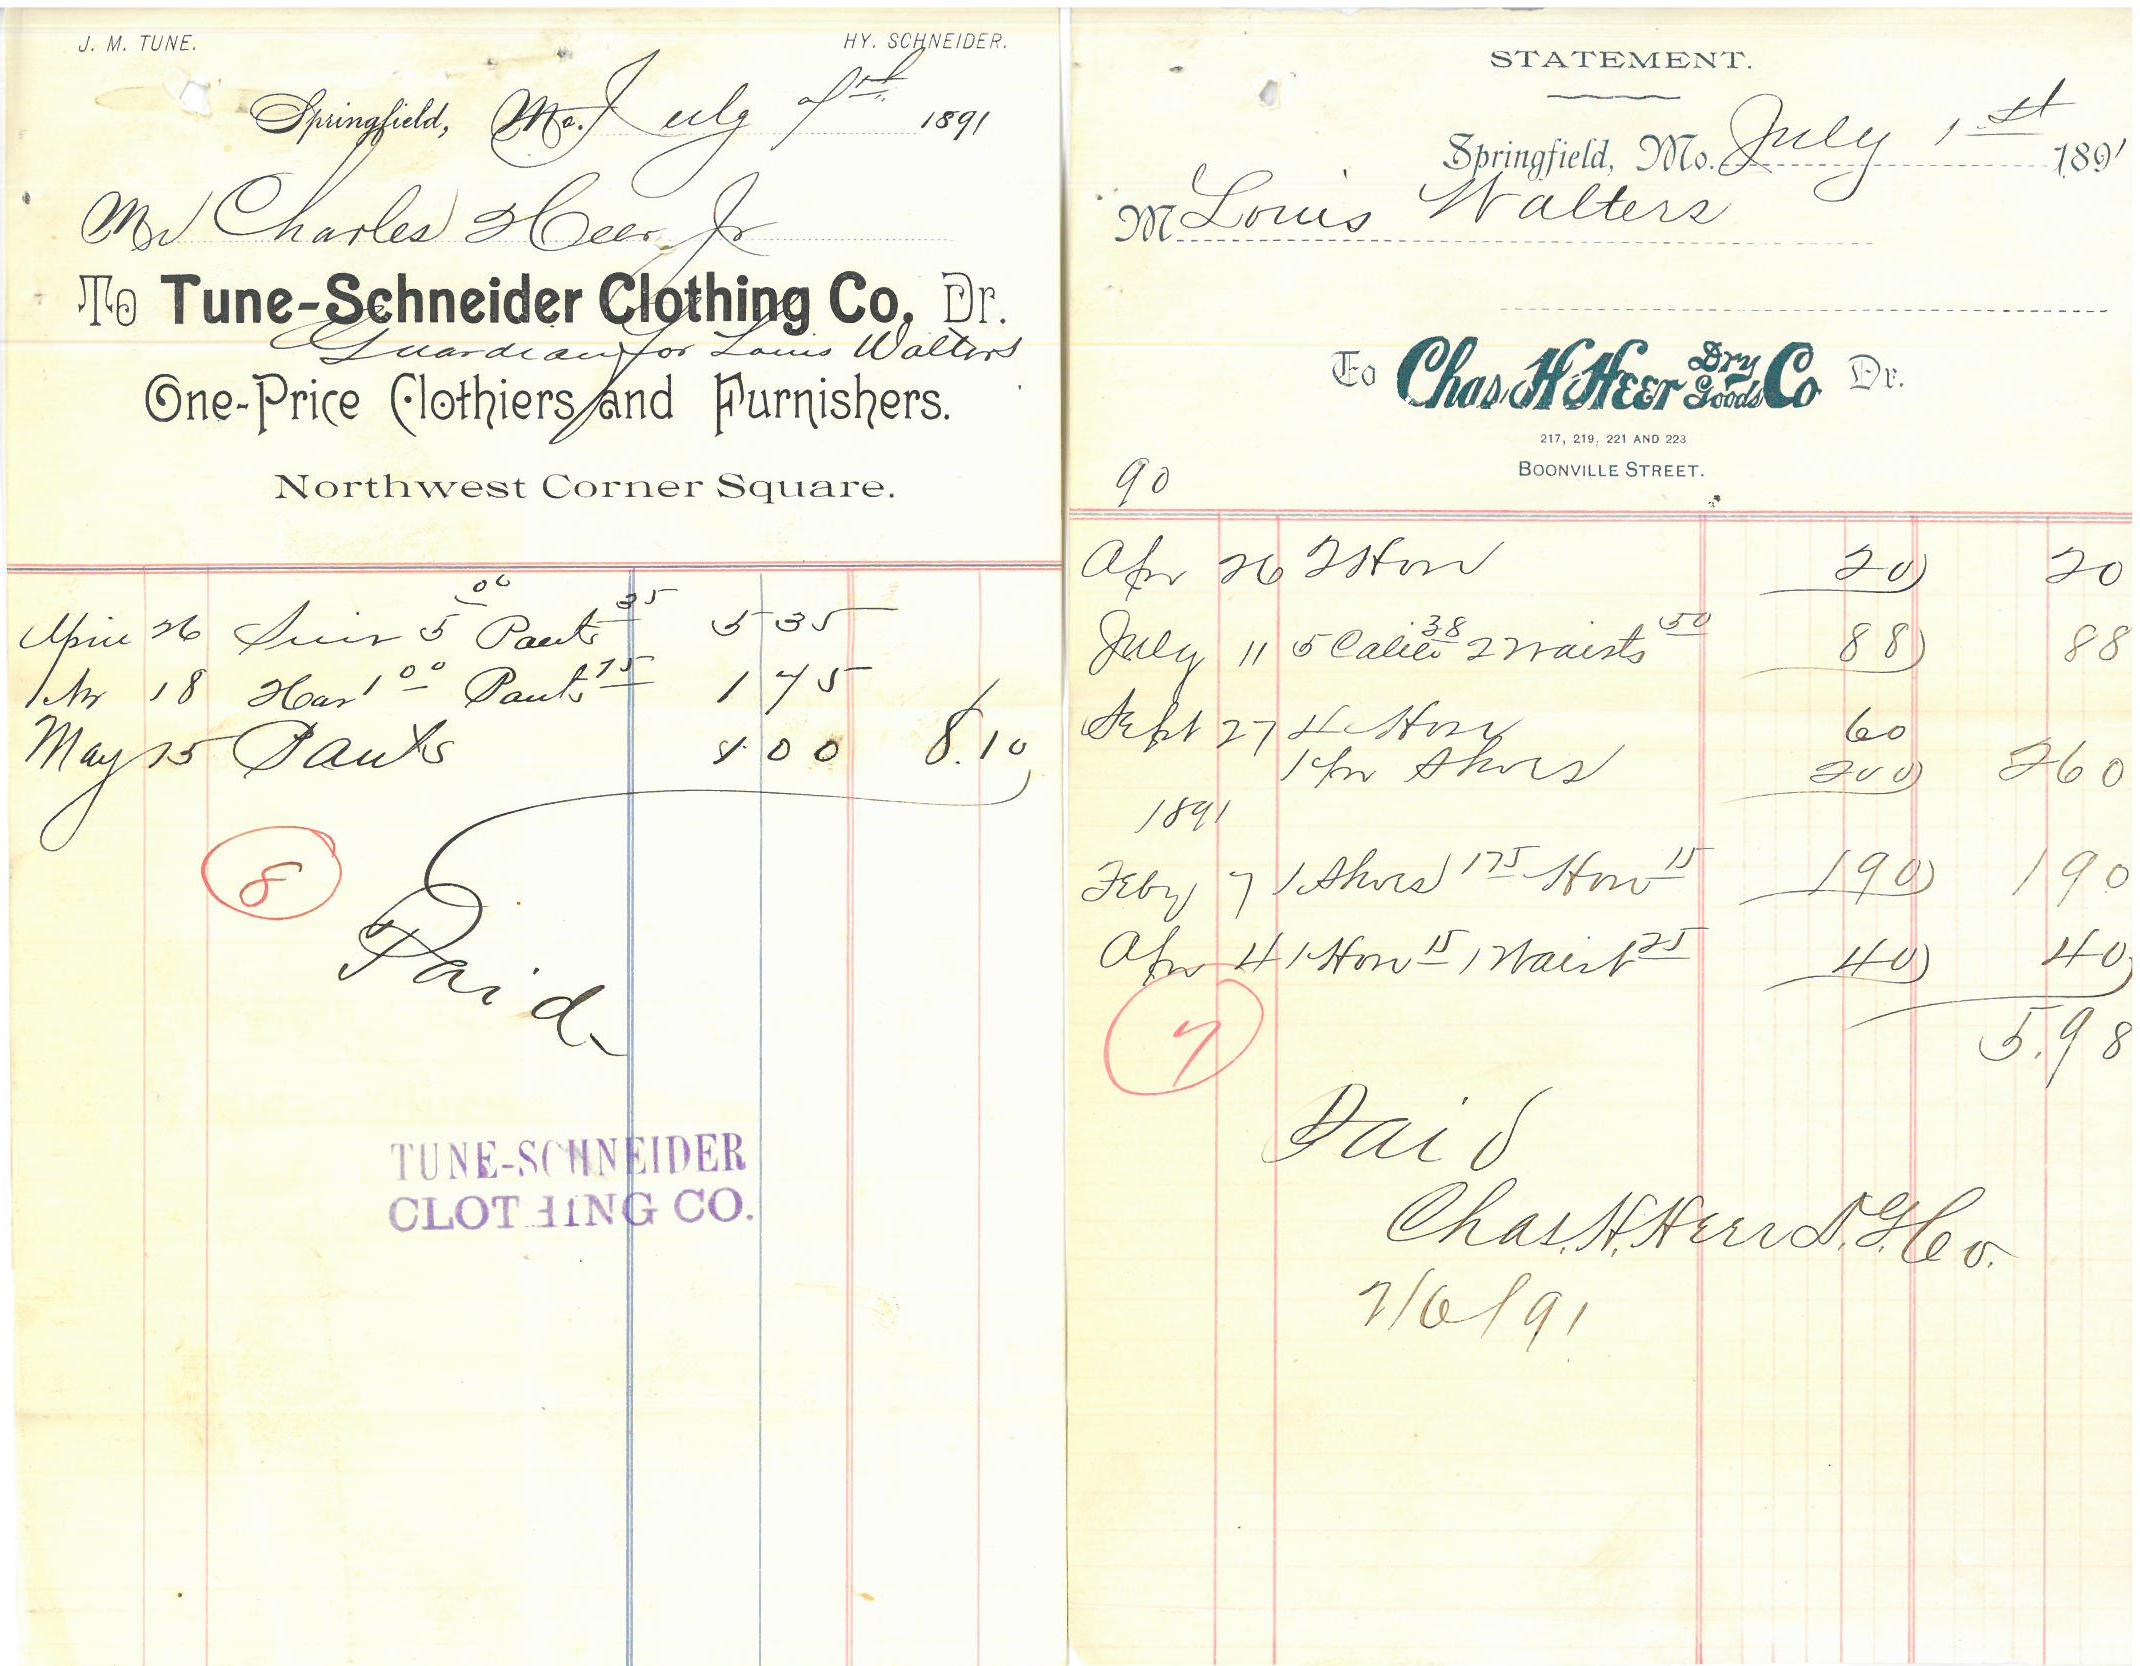 J. M. TUNE. HY. SCHNEIDER.
Springfield, Mo. July 1st 1891
Mr Charles Heer Jr
To Tune-Schneider Clothing Co. Dr.
Guardian for Louis Walters
One-Price Clothiers and Furnishers.
Northwest Corner Square.
26 5 00 Pants 35 5 35
18 1 00 Pants 75 1 75
May 15 Pants 1 00 8.10
8
Paid
TUNE-SCHNEIDER
CLOTHING CO.
STATEMENT.
Springfield, Mo. July 1st 1891
M Louis Walters
To Chas. H Heer Dry Goods Co Dr.
217, 219, 221 AND 223
BOONVILLE STREET.
90
Apr 26 2 Hose 20 20
July 11 5 Calico 38 2 Waists 50 88 88
Sept 27 4 Hose 60
1 pr Shoes 200 260
1891
Feby 7 1 Shoes 175 Hose 15 190 190
Apr 4 1 Hose 15 1 Waist 25 40 40
5.98
7
Paid
Chas. H. Heer D. G. Co.
7/6/91